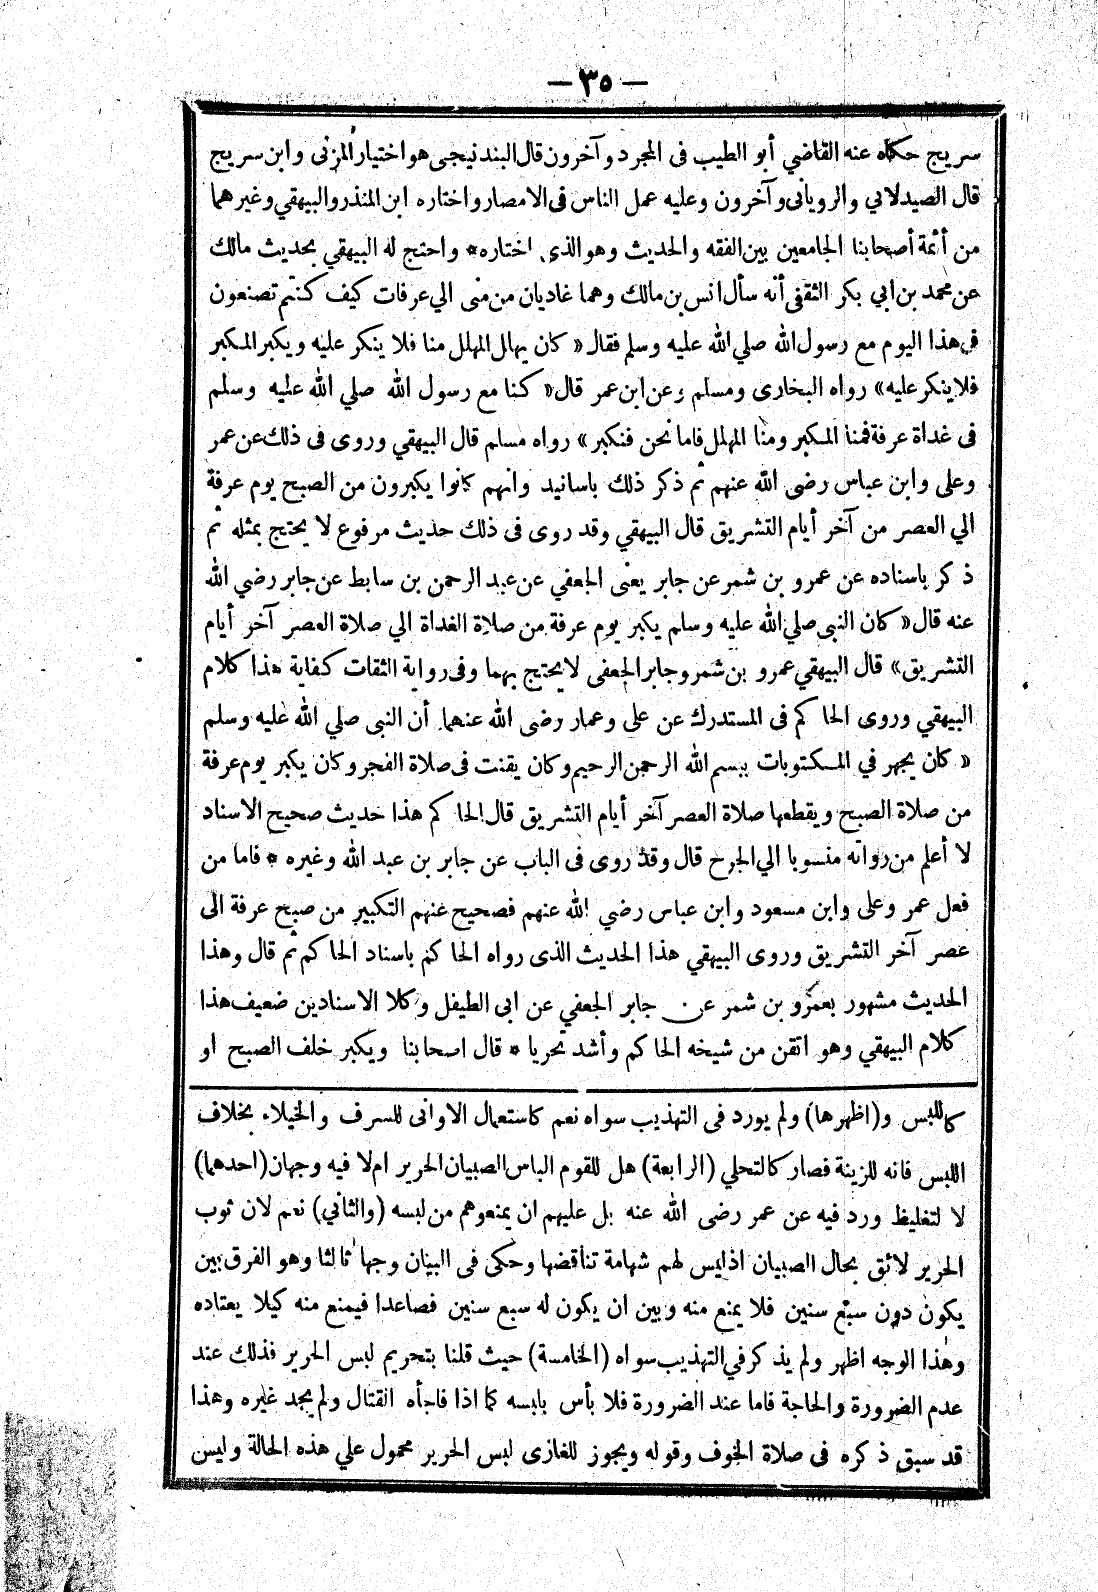 — ٣٥ —
سريج حكاه عنه القاضي أبو الطيب فى المجرد وآخرون قال البندنيجى هو اختيار المزنى وابن سريج
قال الصيدلاني والرويانى وآخرون وعليه عمل الناس فى الامصار واختاره ابن المنذر والبيهقي وغيرهما
من أئمة أصحابنا الجامعين بين الفقه والحديث وهو الذى اختاره * واحتج له البيهقي بحديث مالك
عن محمد بن ابي بكر الثقفى أنه سأل انس بن مالك وهما غاديان من منى الي عرفات كيف كنتم تصنعون
فى هذا اليوم مع رسول الله صلي الله عليه وسلم فقال « كان يهلل المهلل منا فلا ينكر عليه ويكبر المكبر
فلا ينكر عليه » رواه البخارى ومسلم وعن ابن عمر قال « كنا مع رسول الله صلي الله عليه وسلم
فى غداة عرفة فمنا المكبر ومنا المهلل فاما نحن فنكبر » رواه مسلم قال البيهقي وروى فى ذلك عن عمر
وعلى وابن عباس رضى الله عنهم ثم ذكر ذلك باسانيد وانهم كانوا يكبرون من الصبح يوم عرفة
الي العصر من آخر أيام التشريق قال البيهقي وقد روى فى ذلك حديث مرفوع لا يحتج بمثله ثم
ذكر باسناده عن عمرو بن شمر عن جابر يعنى الجعفي عن عبد الرحمن بن سابط عن جابر رضي الله
عنه قال « كان النبى صلي الله عليه وسلم يكبر يوم عرفة من صلاة الغداة الي صلاة العصر آخر أيام
التشريق » قال البيهقي عمرو بن شمر وجابر الجعفى لا يحتج بهما وفى رواية الثقات كفاية هذا كلام
البيهقي وروى الحاكم فى المستدرك عن على وعمار رضى الله عنهما أن النبى صلي الله عليه وسلم
« كان يجهر في المكتوبات ببسم الله الرحمن الرحيم وكان يقنت فى صلاة الفجر وكان يكبر يوم عرفة
من صلاة الصبح ويقطعها صلاة العصر آخر أيام التشريق قال الحاكم هذا حديث صحيح الاسناد
لا أعلم من رواته منسوبا الي الجرح قال وقد روى فى الباب عن جابر بن عبد الله وغيره * فاما من
فعل عمر وعلى وابن مسعود وابن عباس رضي الله عنهم فصحيح عنهم التكبير من صبح عرفة الى
عصر آخر التشريق وروى البيهقي هذا الحديث الذى رواه الحاكم باسناد الحاكم ثم قال وهذا
الحديث مشهور بعمرو بن شمر عن جابر الجعفي عن ابى الطيفل وكلا الاسنادين ضعيف هذا
كلام البيهقي وهو اتقن من شيخه الحاكم وأشد تحريا * قال اصحابنا ويكبر خلف الصبح او
كاللبس و(اظهرها) ولم يورد فى التهذيب سواه نعم كاستعمال الاوانى للسرف والخيلاء بخلاف
اللبس فانه للزينة فصار كالتحلي (الرابعة) هل للقوم الباس الصبيان الحرير ام لا فيه وجهان (احدهما)
لا لتغليظ ورد فيه عن عمر رضى الله عنه بل عليهم ان يمنعوهم من لبسه (والثاني) نعم لان ثوب
الحرير لائق بحال الصبيان اذ ليس لهم شهامة تناقضها وحكى فى البيان وجها ثالثا وهو الفرق بين
يكون دون سبع سنين فلا يمنع منه وبين ان يكون له سبع سنين فصاعدا فيمنع منه كيلا يعتاده
وهذا الوجه اظهر ولم يذكر في التهذيب سواه (الخامسة) حيث قلنا بتحريم لبس الحرير فذلك عند
عدم الضرورة والحاجة فاما عند الضرورة فلا بأس بلبسه كما اذا فاجأه القتال ولم يجد غيره وهذا
قد سبق ذكره فى صلاة الخوف وقوله ويجوز للغازى لبس الحرير محمول علي هذه الحالة وليس